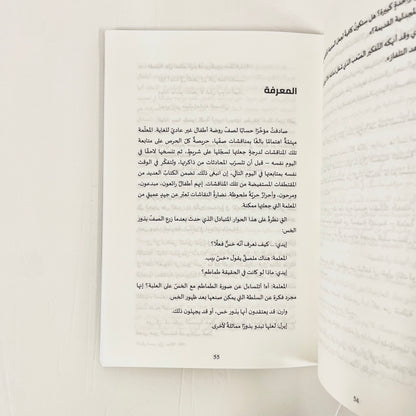 المعرفة
صادفتُ مؤخرًا حسابًا لصفّ روضة أطفال غير عاديّ للغاية. المعلّمة
مهتمّة اهتمامًا بالغًا بمناقشات صفّها، حريصة كلّ الحرص على متابعة
تلك المناقشات لدرجةِ جعلها تسجلها على شريطٍ، ثم تنسخها لاحقًا في
اليوم نفسه – قبل أن تتسرّب المحادثات من ذاكرتها، ولتفكّر في الوقت
بمتابعتها في اليوم التالي، إن انبغى ذلك. تضمن الكتابُ العديد من
المقتطفات المستفيضة من تلك المناقشات. إنهم أطفالٌ رائعون، مبدعون،
ومرحون، وأحرارٌ بحريّة ملحوظة. نضارة النقاشات تعبّر عن جهدٍ عميقٍ من
المعلمة التي جعلتها ممكنة.
ألقِ نظرةً على هذا الحوار المتبادل الذي حدث بعدما زرع الصفّ بذور
الخس:
إيدي: .. كيف نعرف أنه خسٌّ فعلًا؟
المعلمة: هناك ملصقٌ يقول «خسّ بيب».
إيدي: ماذا لو كانت في الحقيقة طماطم؟
المعلمة: آه! أتتساءل عن صورة الطماطم مع الخسّ على العلبة؟ إنها
مجرد فكرة عن السلطة التي يمكن صنعها بعد ظهور الخس.
وارن: قد يعتقدون أنها بذور خس، أو قد يجهلون ذلك.
إيرل: لعلها تبدو بذورًا مماثلة لأخرى
55
54